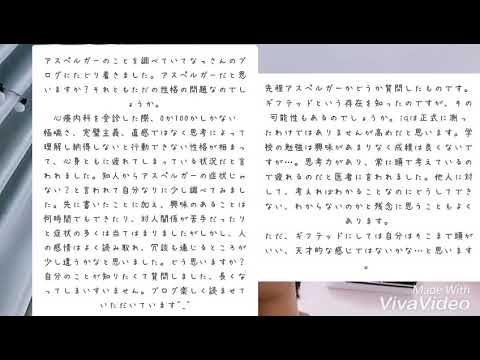 アスペルガーのことを調べていてなっさんのブ
ログにたどり着きました。アスペルガーだと思
いますか？それともただの性格の問題なのでし
ょうか。
心療内科を受診した際、0か100かしかない
極端さ、完璧主義、直感ではなく思考によって
理解し納得しないと行動できない性格が相まっ
て、心身ともに疲れてしまっている状況だと言
われました。知人からアスペルガーの症状じゃ
ない？と言われて自分なりに少し調べてみまし
た。先に書いたことに加え、興味のあることは
何時間でもできたり、対人関係が苦手だったり
と症状の多くは当てはまりましたがしかし、人
の感情はよく読み取れ、冗談も通じるところが
少し違うかなと思いました。どう思いますか？
自分のことが知りたくて質問しました、長くな
ってしまいすいません。ブログ楽しく読ませて
いただいています^_^
先程アスペルガーかどうか質問したものです。
ギフテッドという存在を知ったのですが、その
可能性もあるのでしょうか。iqは正式に測っ
たわけではありませんが高めだと思います。学
校の勉強は興味があまりなく成績は良くないで
すが…。思考力があり、常に頭で考えているの
で疲れるのだと医者に言われました。他人に対
して、考えればわかることなのにどうしてでき
ない、わからないのかと残念に思うこともよく
あります。
ただ、ギフテッドにしては自分はそこまで頭が
いい、天才的な感じではないかな…と思います
。
Made With
VivaVideo